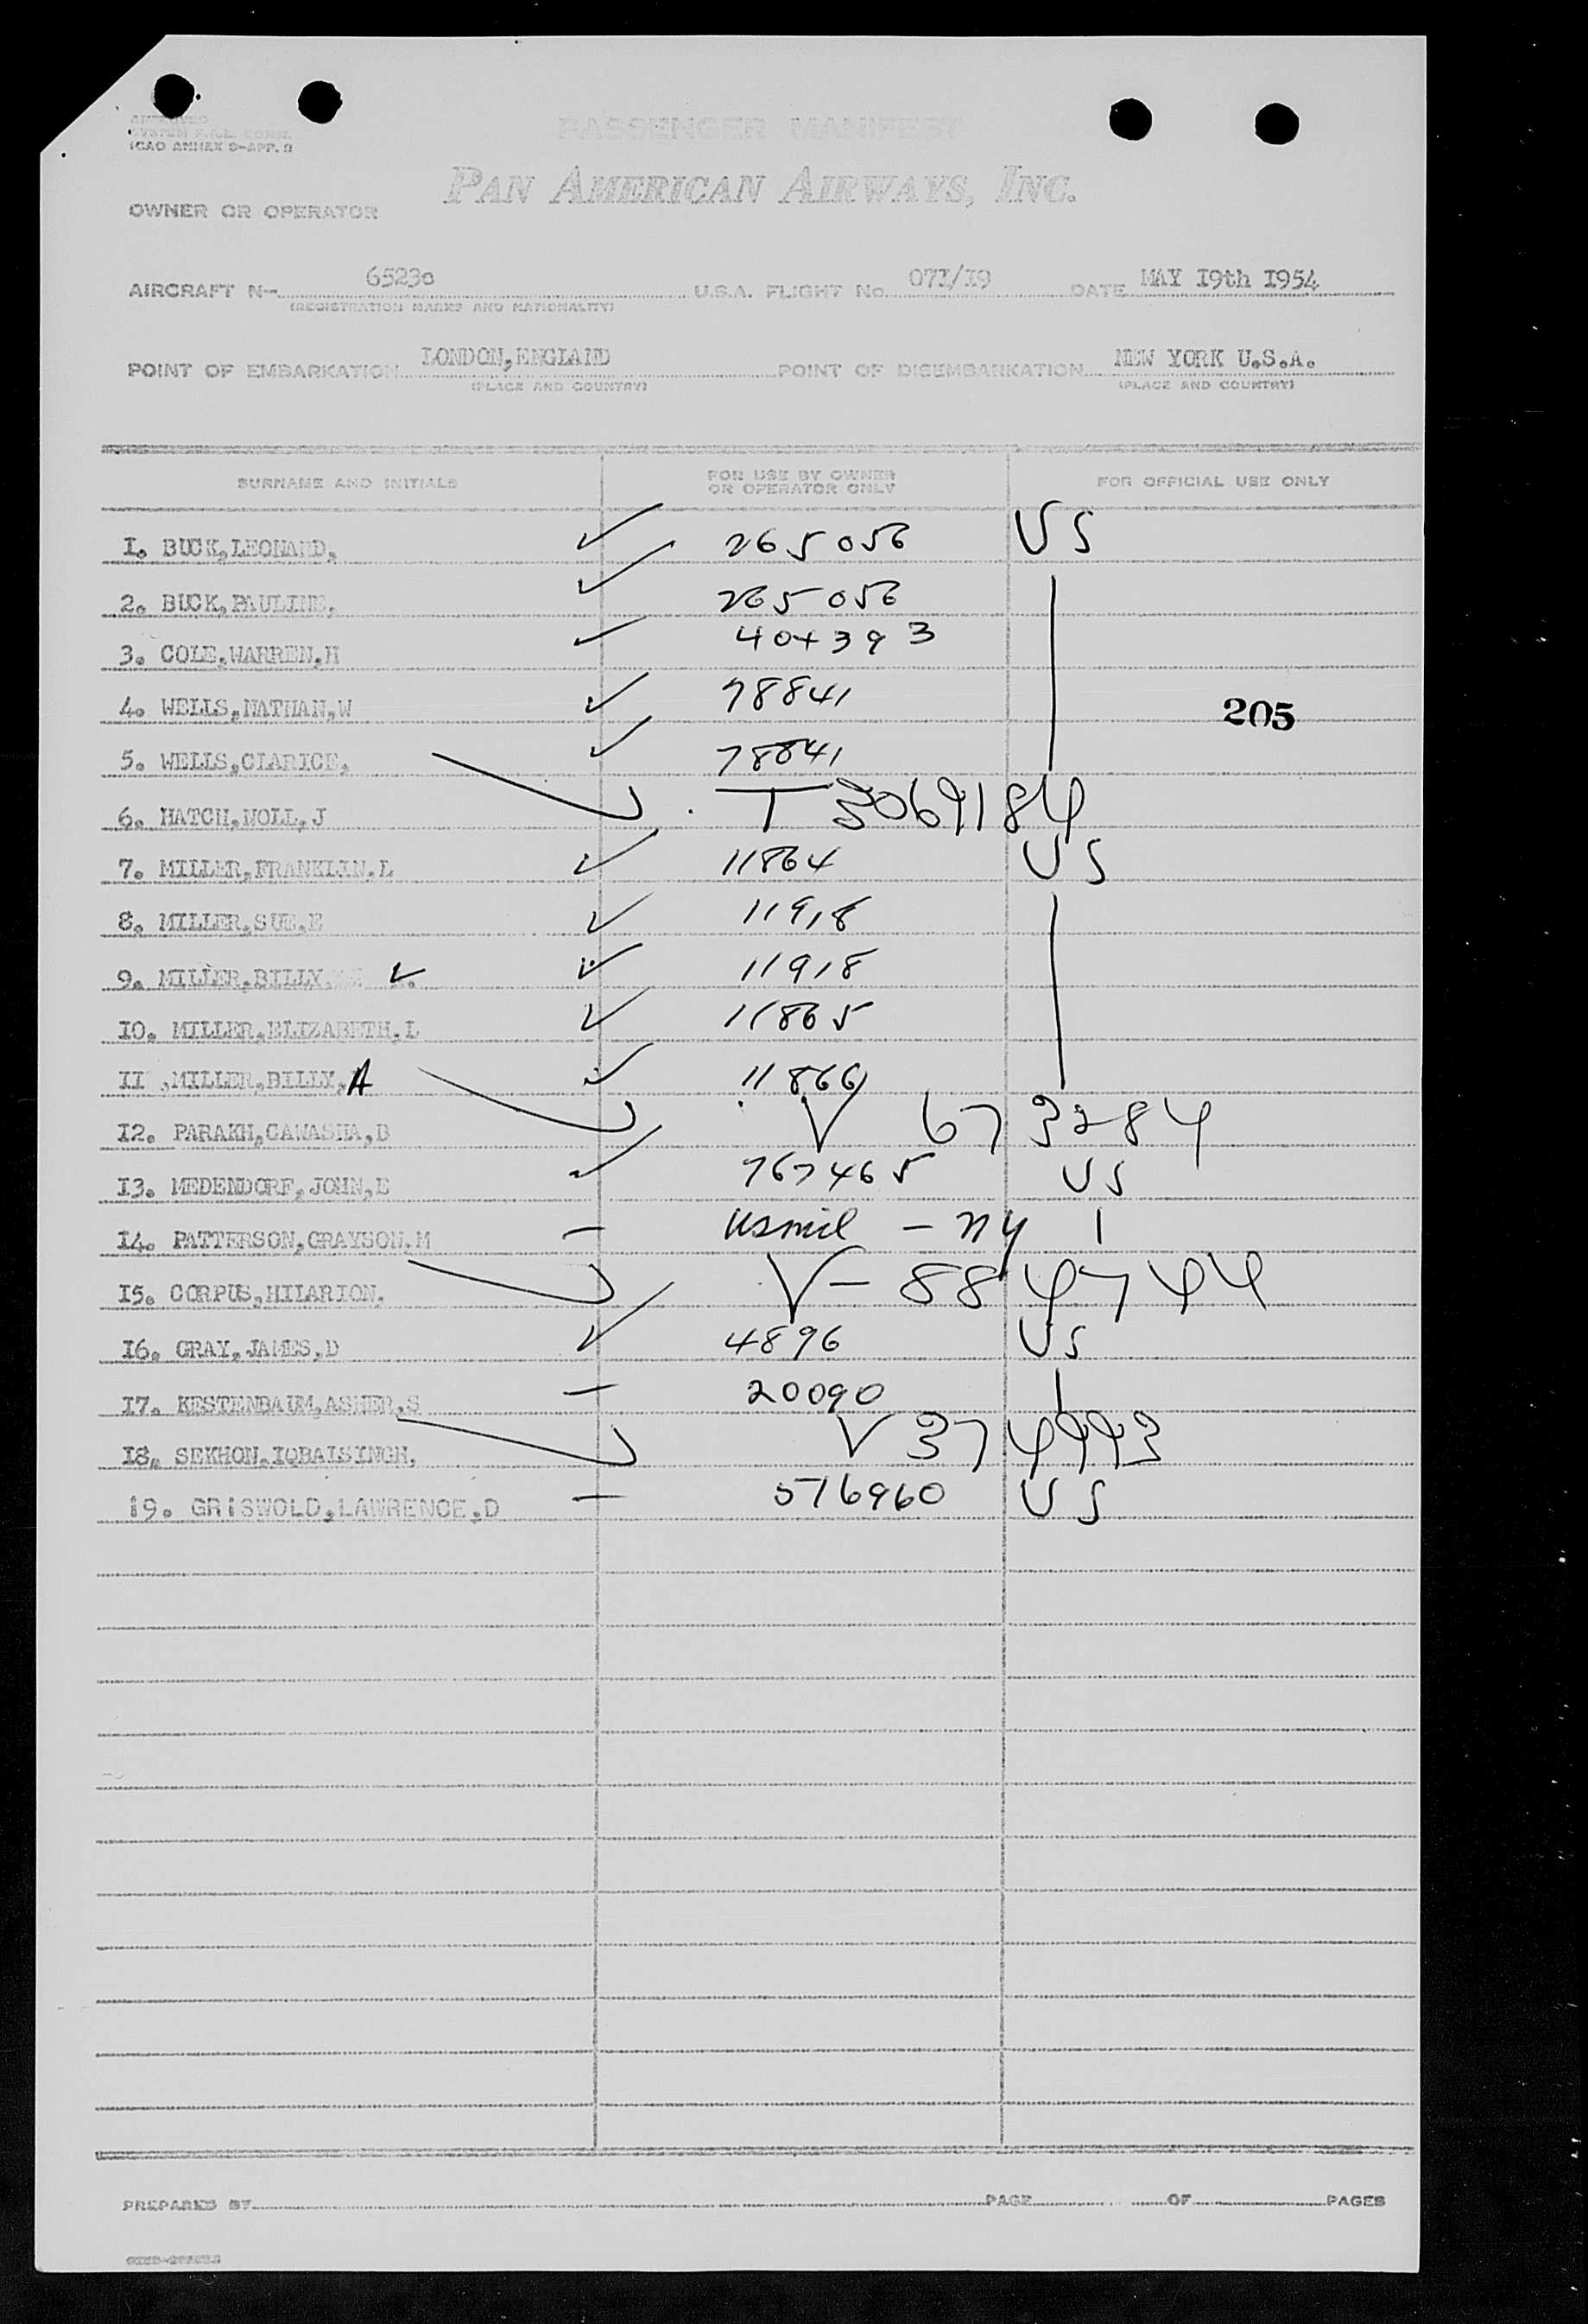 APPROVED
SYSTEM F.A.L. COMM.
ICAO ANNEX 9-APP. 3
PASSENGER MANIFEST
PAN AMERICAN AIRWAYS, INC.
OWNER OR OPERATOR
AIRCRAFT N- 65230 U.S.A. FLIGHT No. 07I/I9 DATE MAY I9th I954
(REGISTRATION MARKS AND NATIONALITY)
POINT OF EMBARKATION LONDON,ENGLAND POINT OF DISEMBARKATION NEW YORK U.S.A.
(PLACE AND COUNTRY) (PLACE AND COUNTRY)
SURNAME AND INITIALS FOR USE BY OWNER OR OPERATOR ONLY FOR OFFICIAL USE ONLY
I. BUCK,LEONARD, ✓ 265056 US
2. BUCK,PAULINE, ✓ 265056
3. COLE,WARREN,H ✓ 404393
4. WELLS,NATHAN,W ✓ 78841
205
5. WELLS,CLARICE, ✓ 78841
6. HATCH,NOLL,J T 3069184
7. MILLER,FRANKLIN.L ✓ 11864 US
8. MILLER,SUE,E ✓ 11918
9. MILLER,BILLY, L. ✓ 11918
IO. MILLER,ELIZABETH,L ✓ 11865
II ,MILLER,BILLY,A ✓ 11866
I2. PARAKH,CAWASHA,B V 673284
I3. MEDENDORF,JOHN,E ✓ 767465 US
I4. PATTERSON,GRAYSON.M — usmil - ny
I5. CORPUS,HILARION, V-884744
I6. GRAY,JAMES,D ✓ 4896 US
I7. KESTENBAUM,ASHER,S — 20090
I8. SEKHON,IQBALSINGH, V 374993
19. GRISWOLD,LAWRENCE,D — 576960 US
PREPARED BY PAGE OF PAGES